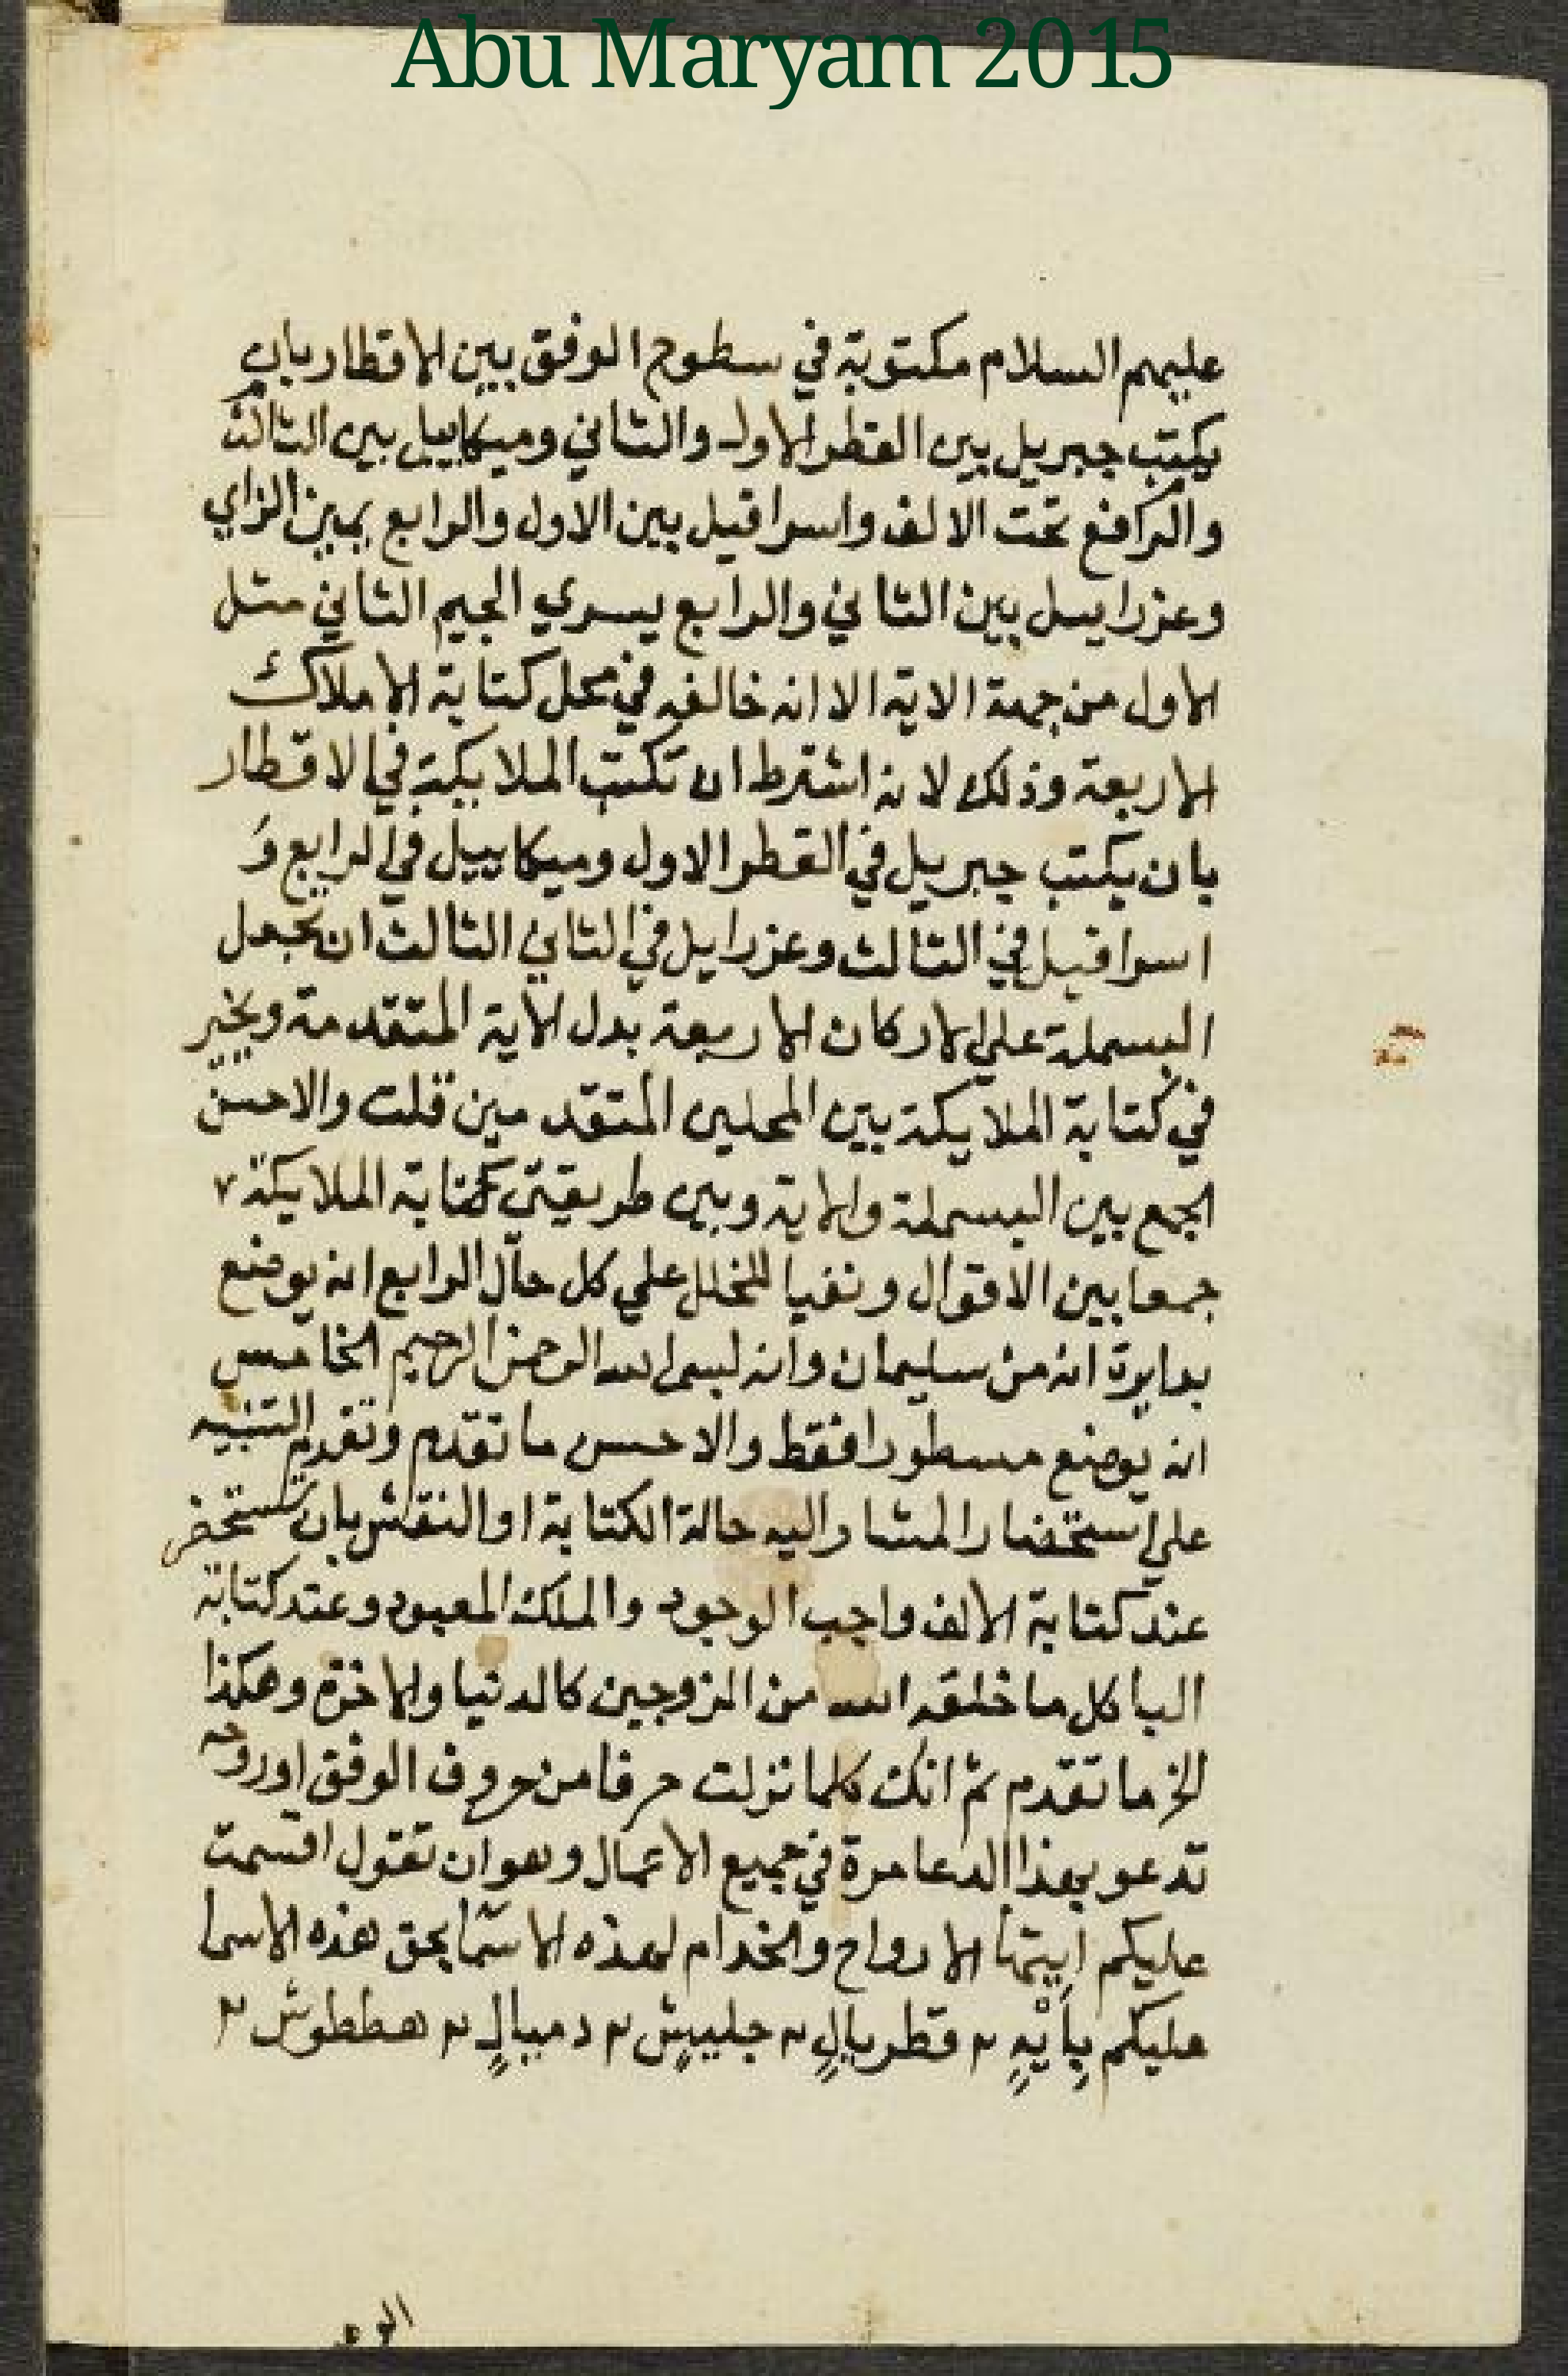 Abu Maryam 2015
عليهم السلام مكتوبة في سطوح الوفق بين الاقطار بان
يكتب جبريل بين القطر الاول والثاني وميكاييل بين الثالث
والرافع تحت الالف واسرافيل بين الاول والرابع يمين الزاي
وعزراييل بين الثاني والرابع يسري الجيم الثاني مثل
الاول من جهة الاية الا انه خالفه في محل كتابة الاملاك
الاربعة وذلك لانه اشترط ان تكتب الملايكة في الاقطار
بان يكتب جبريل في القطر الاول وميكاييل في الرابع و
اسرافيل في الثالث وعزرايل في الثاني الثالث ان تجعل
البسملة علي الاركان الاربعة بدل الاية المتقدمة ويخير
في كتابة الملايكة بين المحلين المتقدمين قلت والاحسن
الجمع بين البسملة والاية وبين طريقتي كتابة الملايكة ٧
جمعا بين الاقوال ونفيا للخلل علي كل حال الرابع انه يوضع
بدايرة انه من سليمان وانه لبسم الله الرحمن الرحيم الخامس
انه يوضع مسطورا فقط والاحسن ما تقدم وتقدم التنبيه
علي استحضار المشار اليه حالة الكتابة او النقش بان تستحضر
عند كتابة الالف واجب الوجود والملك المعبود وعند كتابة
البا كل ما خلقه الله من الزوجين كالدنيا والاخرة وهكذا
الخ ما تقدم ثم انك كلما نزلت حرفا من حروف الوفق اوروحه
تدعو بهذا الدعا مرة في جميع الاعمال وهو ان تقول اقسمت
عليكم ايتها الارواح والخدام لهذه الاسما بحق هذه الاسما
عليكم بِاَيْهٍ ٢ قطريالٍ ٢ جلييشٍ ٢ دميالٍ ٢ هططوش ٢